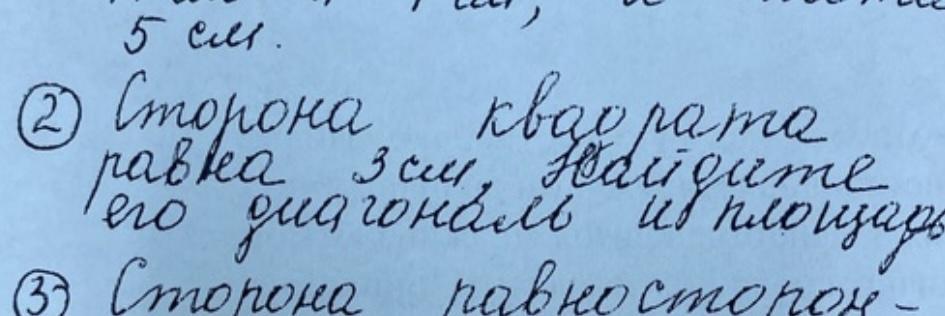 5 см.
② Сторона квадрата
равна 3 см. Найдите
его диагональ и площадь
③ Сторона равносторон-